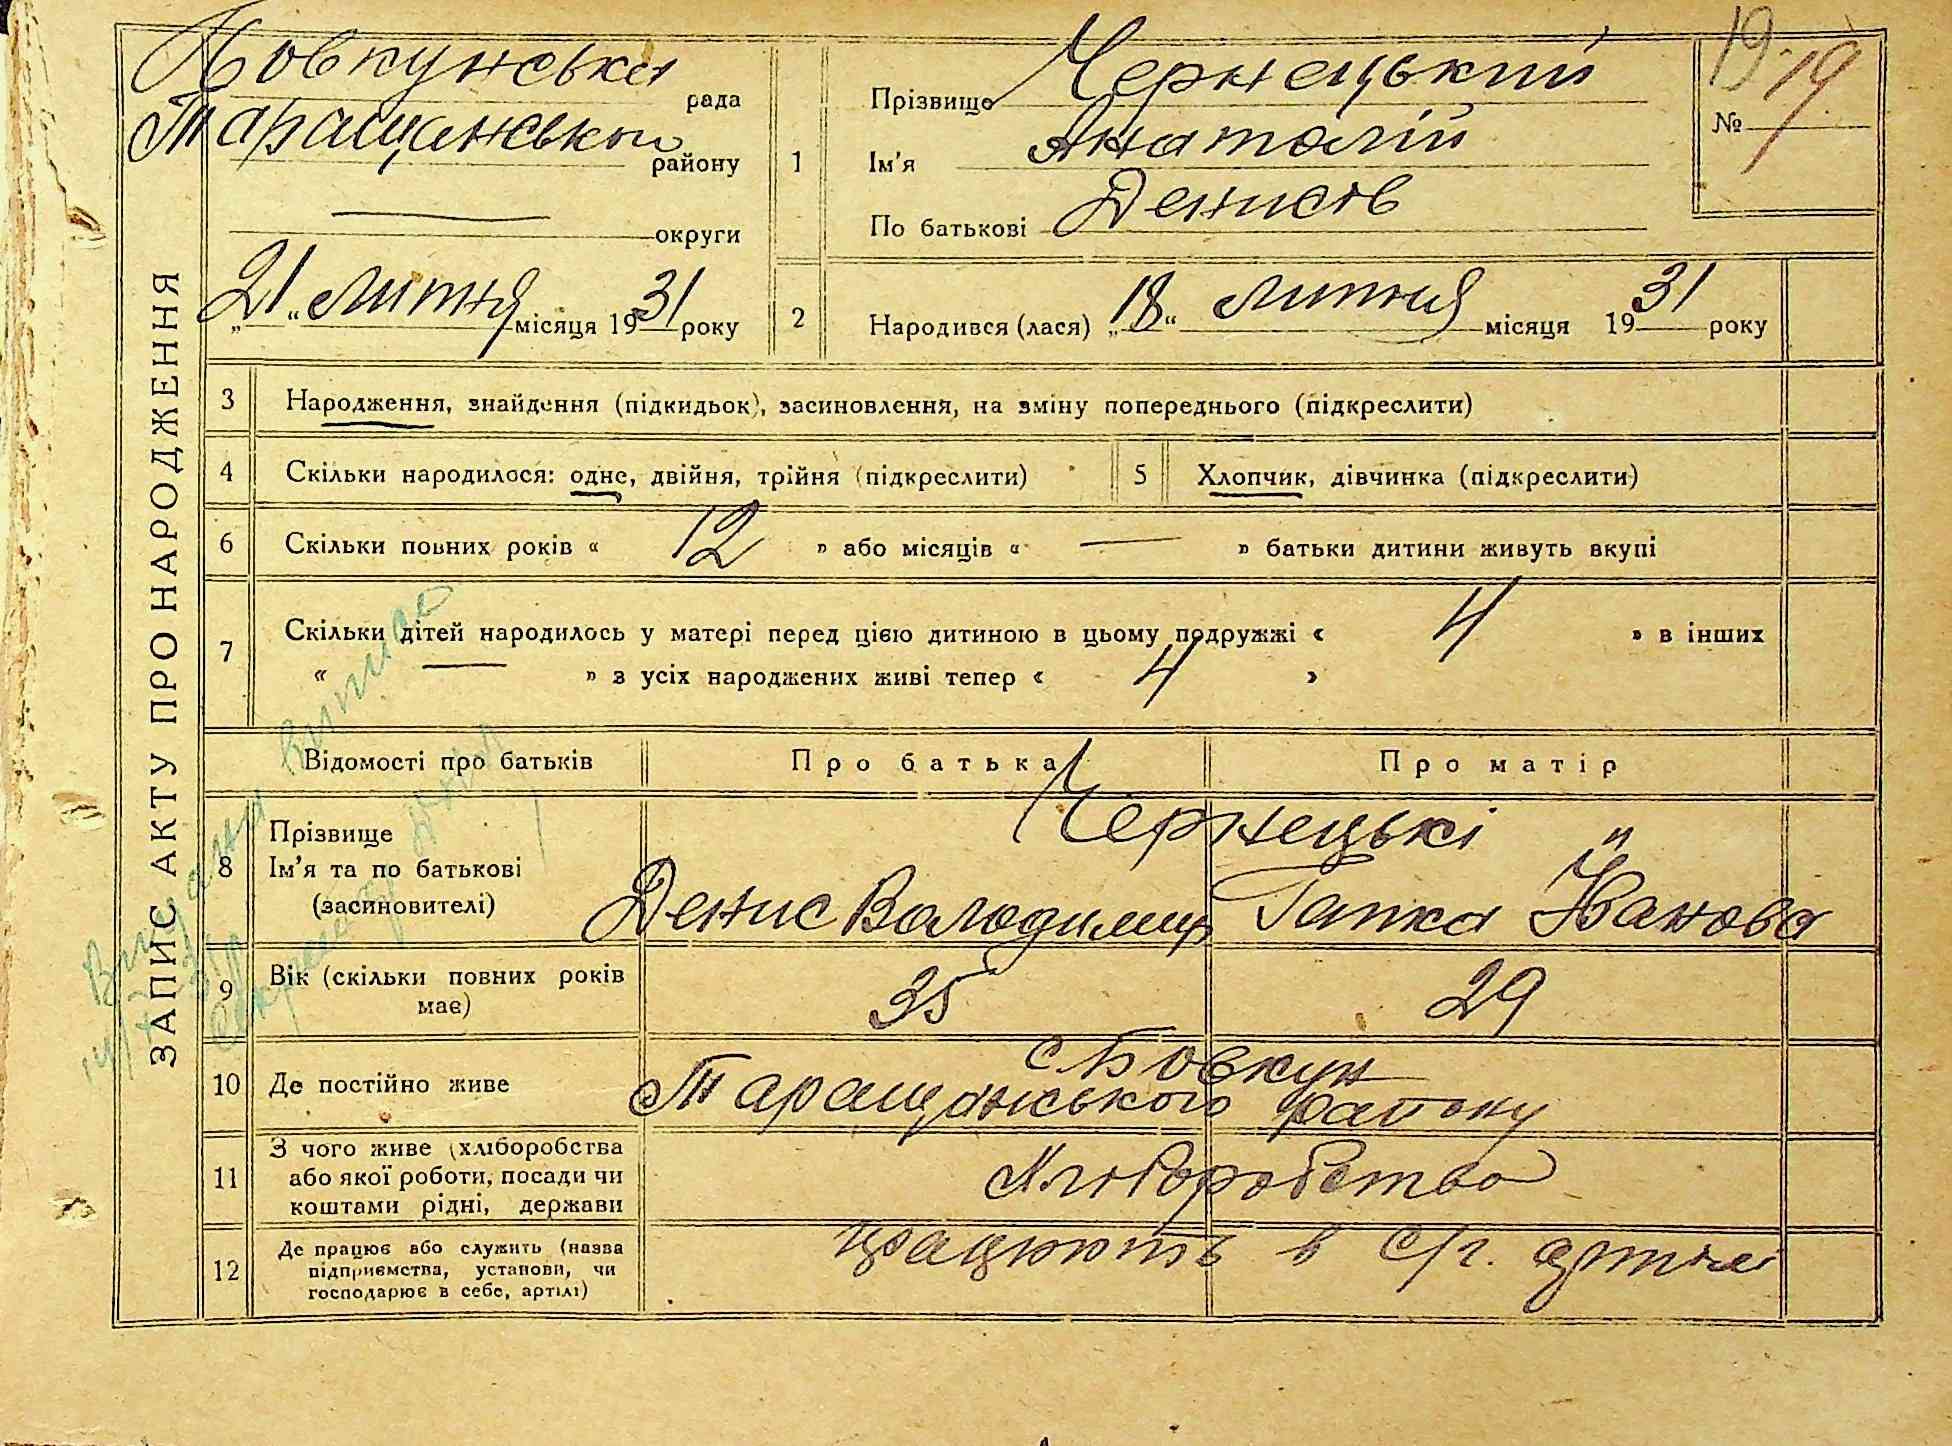 ЗАПИС АКТУ ПРО НАРОДЖЕННЯ
Бовкунська рада
Таращанського району
— округи
„21“ липня місяця 1931 року
1
Прізвище Чернецький
Ім'я Анатолій
По батькові Денисів
19 № 19
2
Народився (лася) „18“ липня місяця 1931 року
3 Народження, знайдення (підкидьок), засиновлення, на зміну попереднього (підкреслити)
4 Скільки народилося: одне, двійня, трійня (підкреслити) 5 Хлопчик, дівчинка (підкреслити)
6 Скільки повних років « 12 » або місяців « — » батьки дитини живуть вкупі
7 Скільки дітей народилось у матері перед цією дитиною в цьому подружжі « 4 » в інших
« — » з усіх народжених живі тепер « 4 »
Відомості про батьків Про батька Про матір
8 Прізвище Чернецькі
Ім'я та по батькові Денис Володимир Гапка Йванова
(засиновителі)
9 Вік (скільки повних років має) 35 29
10 Де постійно живе с Бовкун
Таращанського району
11 З чого живе (хліборобства
або якої роботи, посади чи
коштами рідні, держави
Хліборобство
12 Де працює або служить (назва
підприємства, установи, чи
господарює в себе, артілі)
працюють в с/г. артілі